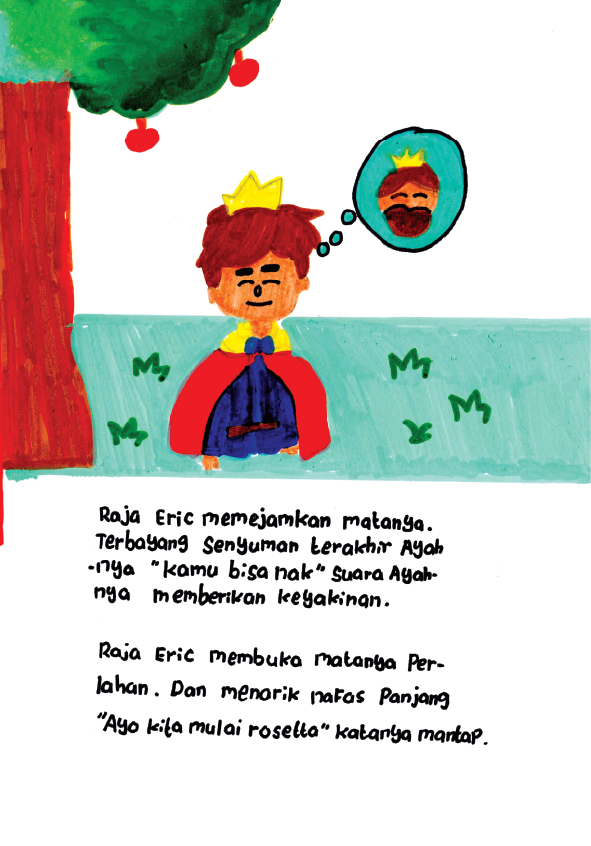 Raja Eric memejamkan matanya.
Terbayang senyuman terakhir Ayah
-nya "kamu bisa nak" suara Ayah-
nya memberikan keyakinan.
Raja Eric membuka matanya Per-
lahan. Dan menarik nafas Panjang
"Ayo kita mulai rosetta" katanya mantap.